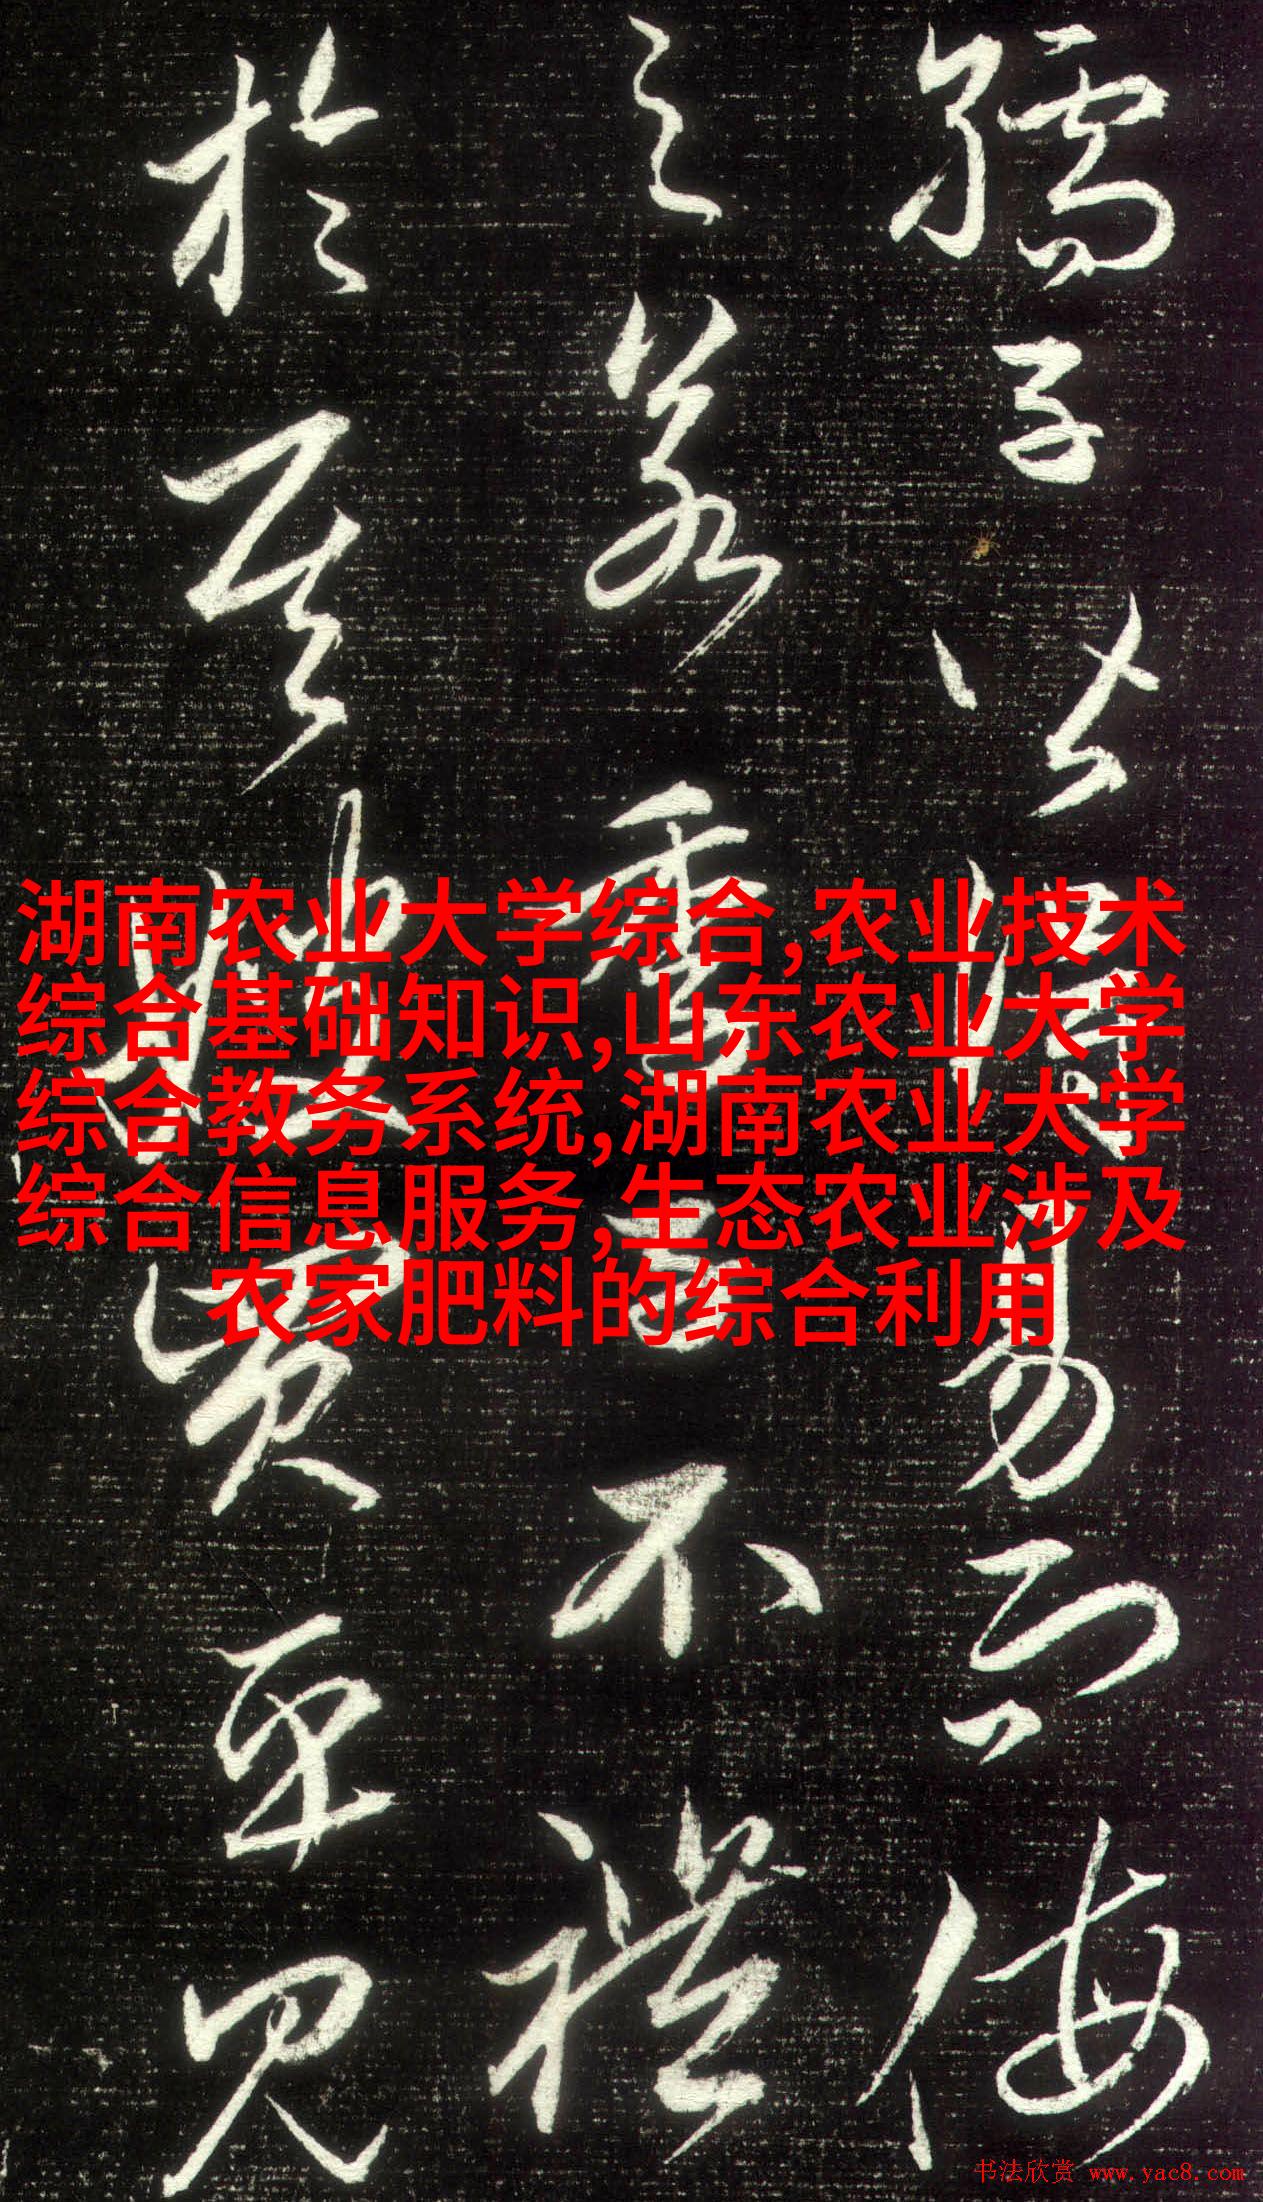 孺子以易侮
之若不禮
於其更見
湖南农业大学综合,农业技术
综合基础知识,山东农业大学
综合教务系统,湖南农业大学
综合信息服务,生态农业涉及
农家肥料的综合利用
书法欣赏 www.yac8.com